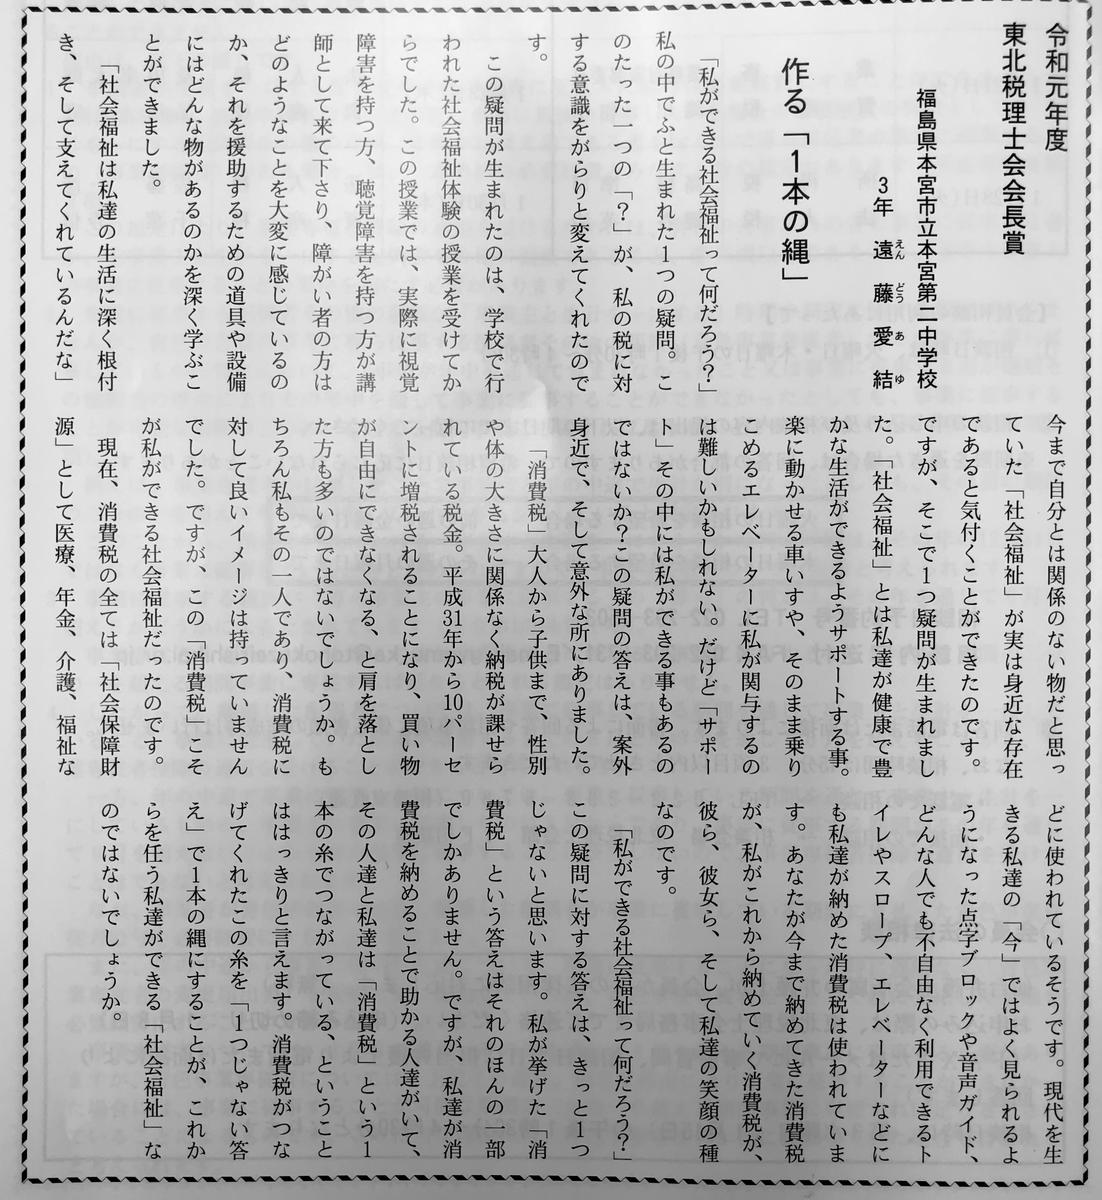 令和元年度
東北税理士会会長賞
福島県本宮市立本宮第二中学校
3年　遠藤　愛結
えんどう　あゆ
作る「1本の縄」
「私ができる社会福祉って何だろう?」
私の中でふと生まれた1つの疑問。こ
のたった一つの「?」が、私の税に対
する意識をがらりと変えてくれたので
す。
この疑問が生まれたのは、学校で行
われた社会福祉体験の授業を受けてか
らでした。この授業では、実際に視覚
障害を持つ方、聴覚障害を持つ方が講
師として来て下さり、障がい者の方は
どのようなことを大変に感じているの
か、それを援助するための道具や設備
にはどんな物があるのかを深く学ぶこ
とができました。
「社会福祉は私達の生活に深く根付
き、そして支えてくれているんだな」
今まで自分とは関係のない物だと思っ
ていた「社会福祉」が実は身近な存在
であると気付くことができたのです。
ですが、そこで1つ疑問が生まれまし
た。「社会福祉」とは私達が健康で豊
かな生活ができるようサポートする事。
楽に動かせる車いすや、そのまま乗り
こめるエレベーターに私が関与するの
は難しいかもしれない、だけど「サポー
ト」その中には私ができる事もあるの
ではないか?この疑問の答えは、案外
身近で、そして意外な所にありました。
「消費税」大人から子供まで、性別
や体の大きさに関係なく納税が課せら
れている税金。平成31年から10パーセ
ントに増税されることになり、買い物
が自由にできなくなる、と肩を落とし
た方も多いのではないでしょうか。も
ちろん私もその一人であり、消費税に
対して良いイメージは持っていません
でした。ですが、この「消費税」こそ
が私ができる社会福祉だったのです。
現在、消費税の全ては「社会保障財
源」として医療、年金、介護、福祉な
どに使われているそうです。現代を生
きる私達の「今」ではよく見られるよ
うになった点字ブロックや音声ガイド、
どんな人でも不自由なく利用できるト
イレやスロープ、エレベーターなどに
も私達が納めた消費税は使われていま
す。あなたが今まで納めてきた消費税
が、私がこれから納めていく消費税が、
彼ら、彼女ら、そして私達の笑顔の種
なのです。
「私ができる社会福祉って何だろう?」
この疑問に対する答えは、きっと1つ
じゃないと思います。私が挙げた「消
費税」という答えはそれのほんの一部
でしかありません。ですが、私達が消
費税を納めることで助かる人達がいて、
その人達と私達は「消費税」という1
本の糸でつながっている、ということ
ははっきりと言えます。消費税がつな
げてくれたこの糸を、「1つじゃない答
え」で1本の縄にすることが、これか
らを任う私達ができる「社会福祉」な
のではないでしょうか。